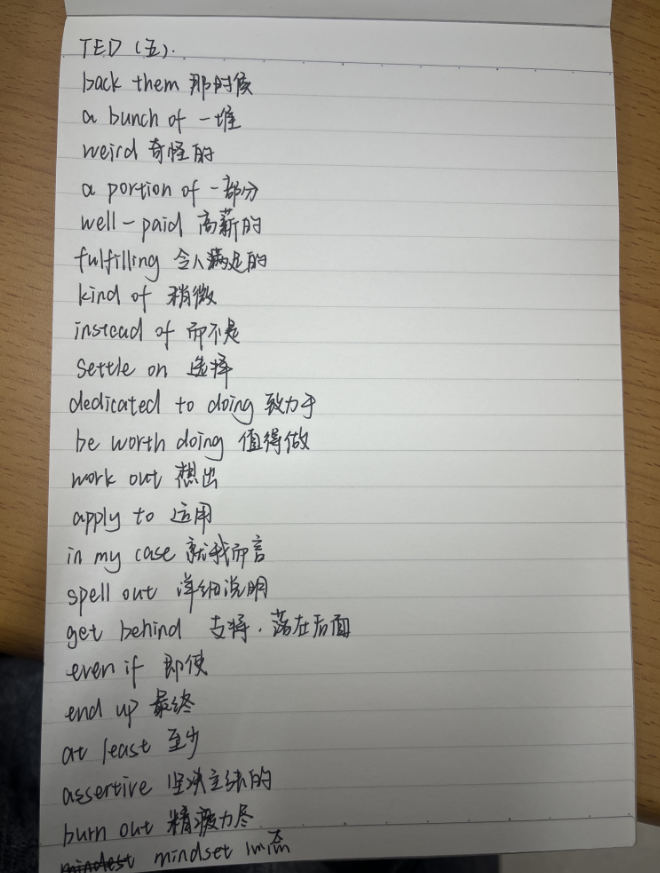 TED（五）.
back them 那时候
a bunch of 一堆
weird 奇怪的
a portion of 一部分
well-paid 高薪的
fulfilling 令人满足的
kind of 稍微
instead of 而不是
settle on 选择
dedicated to doing 致力于
be worth doing 值得做
work out 想出
apply to 运用
in my case 就我而言
spell out 详细说明
get behind 支持.落在后面
even if 即使
end up 最终
at least 至少
assertive 坚决主张的
burn out 精疲力尽
mindest mindset 心态